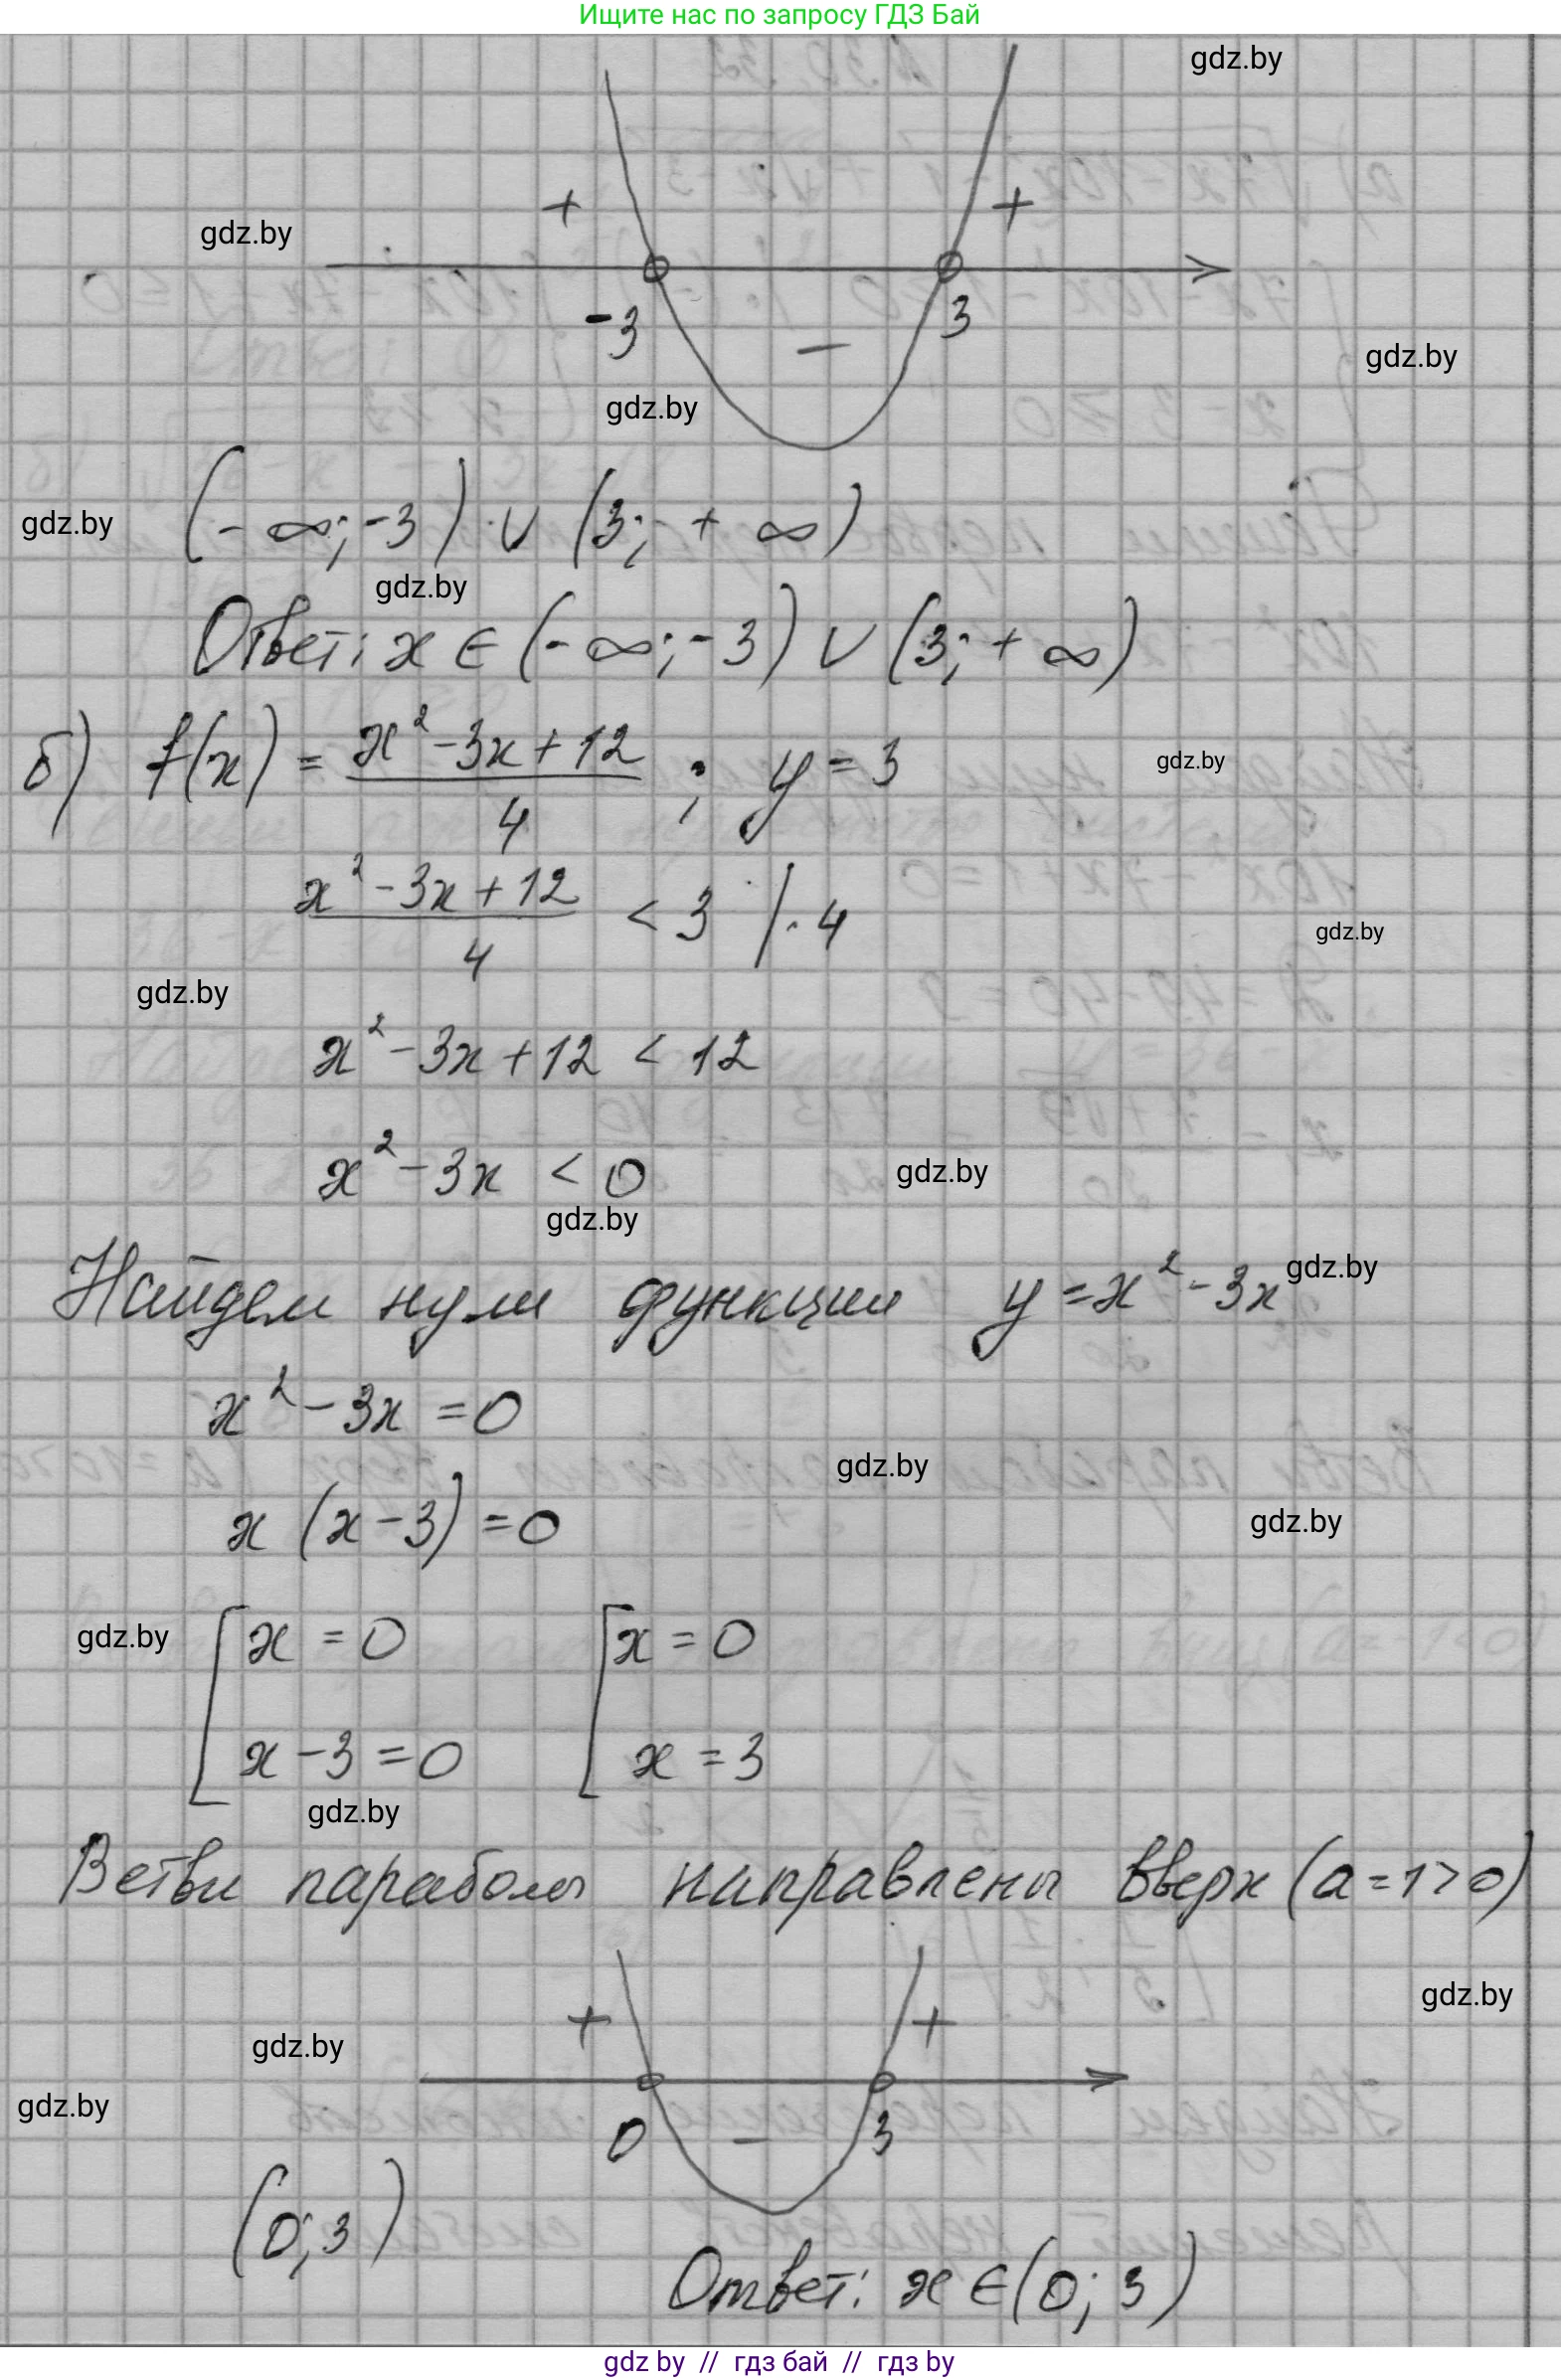 Ищите нас по запросу ГДЗ Бай
gdz.by
+ +
gdz.by
-3 3
−
gdz.by
gdz.by
(-∞; -3) ∪ (3; +∞)
gdz.by
gdz.by
Ответ: x ∈ (-∞; -3) ∪ (3; +∞)
б) f(x) = (x² - 3x + 12)/4 ; y = 3
gdz.by
(x² - 3x + 12)/4 < 3 | · 4
gdz.by
gdz.by
x² - 3x + 12 < 12
x² - 3x < 0
gdz.by
gdz.by
Найдем нули функции y = x² - 3x
gdz.by
x² - 3x = 0
gdz.by
x (x - 3) = 0
gdz.by
[ x = 0 [ x = 0
gdz.by
x - 3 = 0 x = 3
gdz.by
Ветви параболы направлены вверх (a = 1 > 0)
gdz.by
+ +
gdz.by
gdz.by
0 − 3
(0; 3)
Ответ: x ∈ (0; 3)
gdz by // гдз бай // гдз by